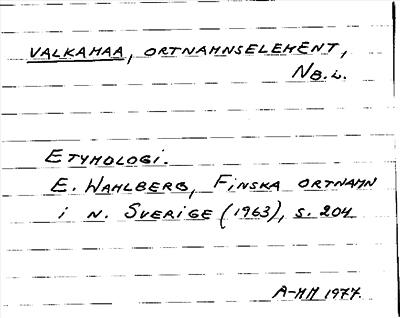 VALKAMAA, ORTNAMNSELEMENT,
NB.L.
ETYMOLOGI.
E. WAHLBERG, FINSKA ORTNAMN
I N. SVERIGE (1963), S. 204
A-MM 1977.